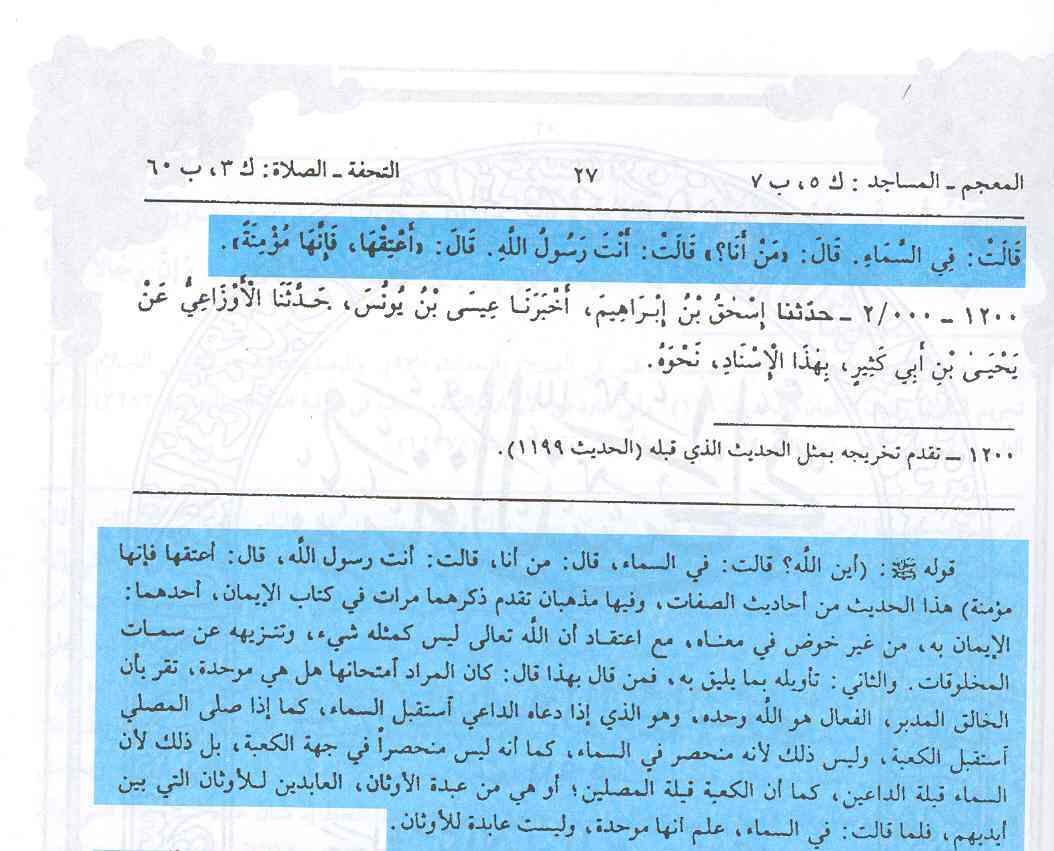 المعجم ـ المساجد : ك ٥، ب ٧ ٢٧ التحفة ـ الصلاة: ك ٣، ب ٦٠
قَالَتْ: فِي السَّمَاءِ. قَالَ: «مَنْ أَنَا؟» قَالَتْ: أَنْتَ رَسُولُ اللَّهِ. قَالَ: «أَعْتِقْهَا، فَإِنَّهَا مُؤْمِنَةٌ».
١٢٠٠ ـ ٢/٠٠٠ ـ حدّثنا إِسْحٰقُ بْنُ إِبْرَاهِيمَ، أَخْبَرَنَا عِيسَى بْنُ يُونُسَ، حَدَّثَنَا الْأَوْزَاعِيُّ عَنْ
يَحْيَىٰ بْنِ أَبِي كَثِيرٍ، بِهٰذَا الْإِسْنَادِ، نَحْوَهُ.
١٢٠٠ ـ تقدم تخريجه بمثل الحديث الذي قبله (الحديث ١١٩٩).
قوله ﷺ: (أين اللَّه؟ قالت: في السماء، قال: من أنا، قالت: أنت رسول اللَّه، قال: أعتقها فإنها
مؤمنة) هذا الحديث من أحاديث الصفات، وفيها مذهبان تقدم ذكرهما مرات في كتاب الإيمان، أحدهما:
الإيمان به، من غير خوض في معناه، مع اعتقاد أن اللَّه تعالى ليس كمثله شيء، وتنزيهه عن سمات
المخلوقات. والثاني: تأويله بما يليق به، فمن قال بهذا قال: كان المراد أمتحانها هل هي موحدة، تقر بأن
الخالق المدبر، الفعال هو اللَّه وحده، وهو الذي إذا دعاه الداعي أستقبل السماء، كما إذا صلى المصلي
أستقبل الكعبة، وليس ذلك لأنه منحصر في السماء، كما أنه ليس منحصراً في جهة الكعبة، بل ذلك لأن
السماء قبلة الداعين، كما أن الكعبة قبلة المصلين؛ أو هي من عبدة الأوثان، العابدين للأوثان التي بين
أيديهم، فلما قالت: في السماء، علم أنها موحدة، وليست عابدة للأوثان.